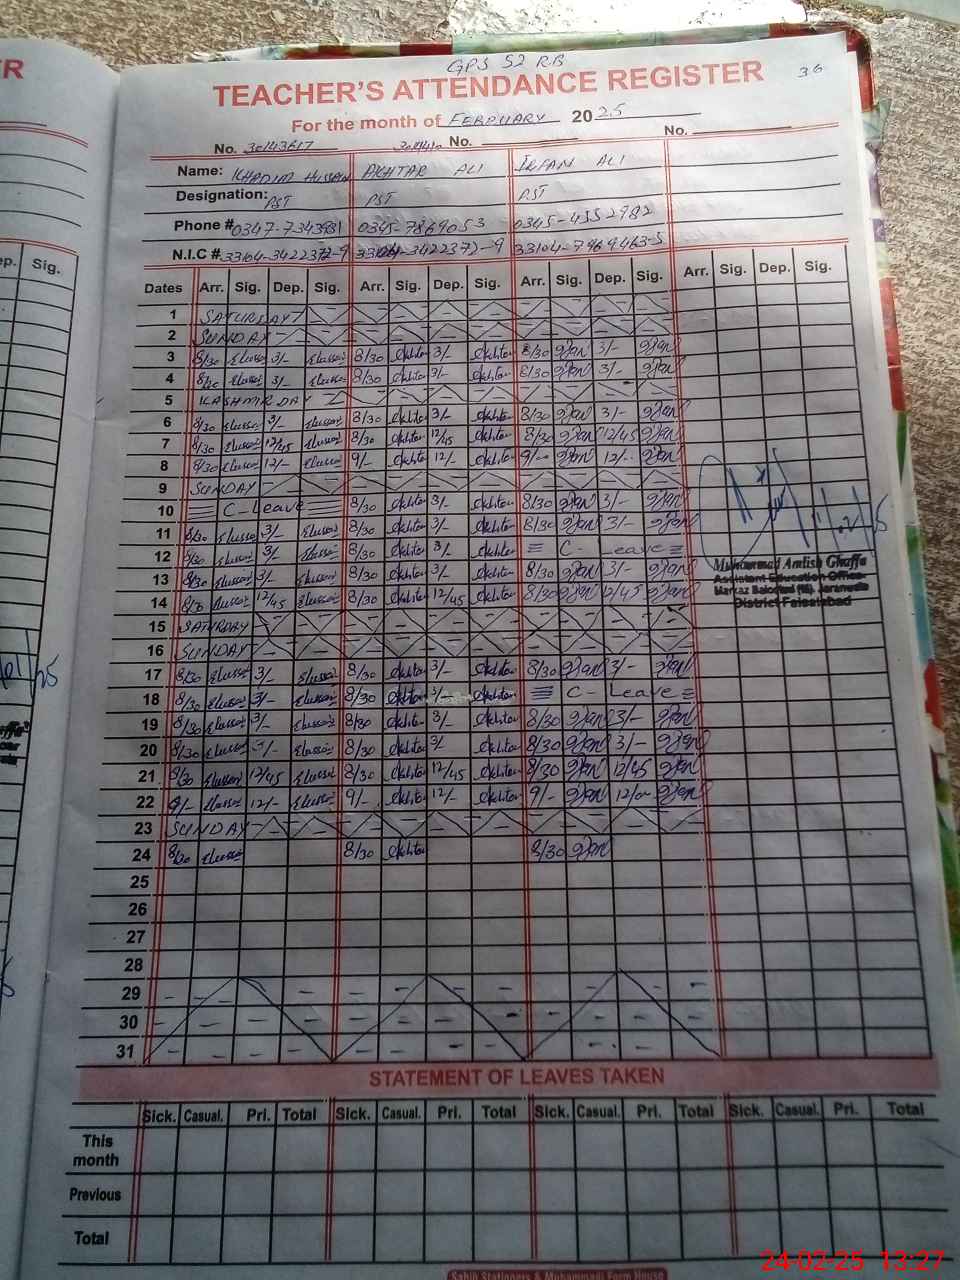 GPS 52 RB
TEACHER'S ATTENDANCE REGISTER 36
For the month of FEBRUARY 2025
No. 30143617 No. No.
Name: KHADIM HUSSAIN AKHTAR ALI IRFAN ALI
Designation: PST PST PST
Phone # 0347-7343981 0345-7869053 0345-4552982
N.I.C # 33104-3422372-9 33104-3422372-9 33104-7969463-5
ep. Sig. Dates Arr. Sig. Dep. Sig. Arr. Sig. Dep. Sig. Arr. Sig. Dep. Sig. Arr. Sig. Dep. Sig.
1 SATURSDAY
2 SUNDAY
3 8/30 3/- 8/30 Akhtar 3/- Akhtar 8/30 Irfan 3/- Irfan
4 8/30 3/- 8/30 Akhtar 3/- Akhtar 8/30 Irfan 3/- Irfan
5 KASHMIR DAY
6 8/30 3/- 8/30 Akhtar 3/- Akhtar 8/30 Irfan 3/- Irfan
7 8/30 12/45 8/30 Akhtar 12/45 Akhtar 8/30 Irfan 12/45 Irfan
8 8/30 12/- 9/- Akhtar 12/- Akhtar 9/- Irfan 12/- Irfan
9 SUNDAY
10 C-Leave 8/30 Akhtar 3/- Akhtar 8/30 Irfan 3/- Irfan
11 8/30 3/- 8/30 Akhtar 3/- Akhtar 8/30 Irfan 3/- Irfan
12 8/30 3/- 8/30 Akhtar 3/- Akhtar C-Leave
13 8/30 3/- 8/30 Akhtar 3/- Akhtar 8/30 Irfan 3/- Irfan
14 8/30 12/45 8/30 Akhtar 12/45 Akhtar 8/30 Irfan 12/45 Irfan
Muhammad Amtish Ghaffa
Assistant Education Office
Markaz Jaranwala
District Faisalabad
15 SATURDAY
16 SUNDAY
17 8/30 3/- 8/30 Akhtar 3/- Akhtar 8/30 Irfan 3/- Irfan
18 8/30 3/- 8/30 Akhtar 3/- Akhtar C-Leave
19 8/30 3/- 8/30 Akhtar 3/- Akhtar 8/30 Irfan 3/- Irfan
20 8/30 3/- 8/30 Akhtar 3/ Akhtar 8/30 Irfan 3/- Irfan
21 8/30 12/45 8/30 Akhtar 12/45 Akhtar 8/30 Irfan 12/45 Irfan
22 9/- 12/- 9/- Akhtar 12/- Akhtar 9/- Irfan 12/- Irfan
23 SUNDAY
24 8/30 8/30 Akhtar 8/30 Irfan
25
26
27
28
29
30
31
STATEMENT OF LEAVES TAKEN
Sick. Casual. Pri. Total Sick. Casual. Pri. Total Sick. Casual. Pri. Total Sick. Casual. Pri. Total
This
month
Previous
Total
24-02-25 13:27